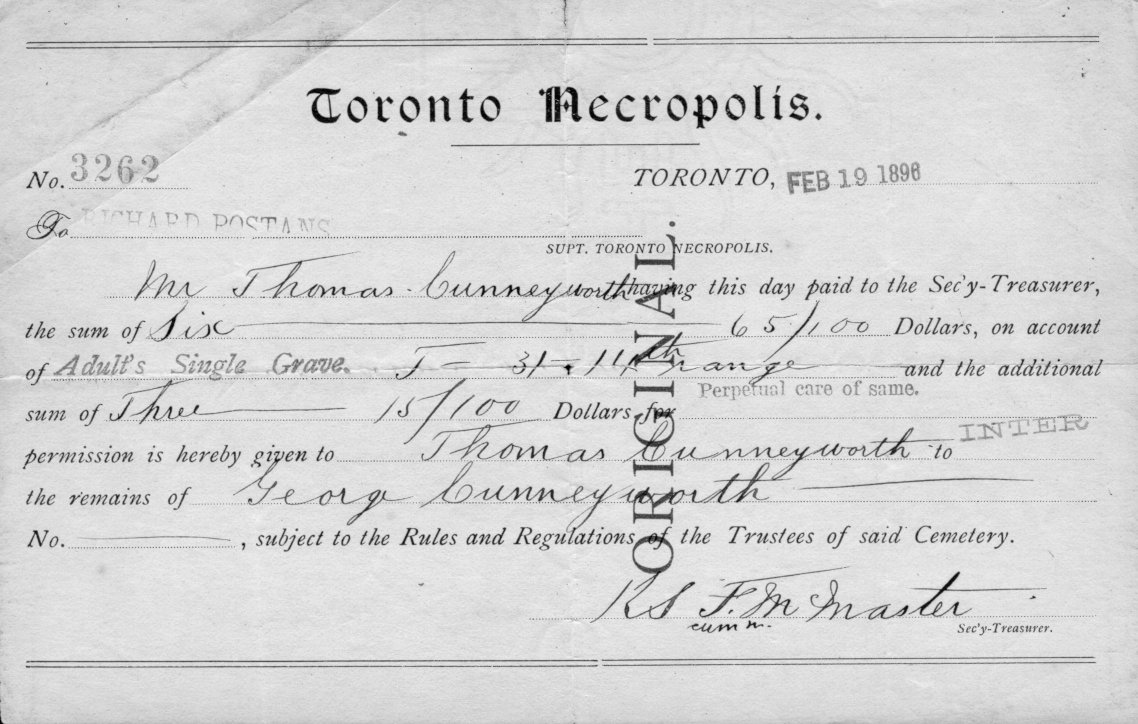 Toronto Necropolis.
No. 3262 TORONTO, FEB 19 1896
To RICHARD POSTANS
SUPT. TORONTO NECROPOLIS.
Mr Thomas Cunneyworth having this day paid to the Sec'y-Treasurer,
the sum of Six 65/100 Dollars, on account
of Adult's Single Grave. T - 31 . 14th range and the additional
Perpetual care of same.
sum of Three 15/100 Dollars for
permission is hereby given to Thomas Cunneyworth to INTER
the remains of George Cunneyworth
No. , subject to the Rules and Regulations of the Trustees of said Cemetery.
F. McMaster
Sec'y-Treasurer.
ORIGINAL.